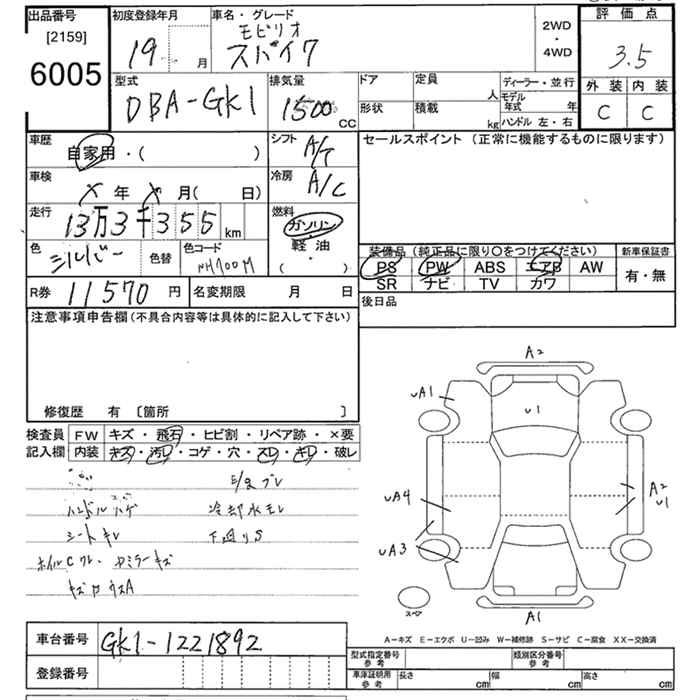 出品番号
[2159]
6005
初度登録年月
19 月
車名・グレード
モビリオ
スパイク
2WD
・
4WD
評価点
3.5
外装 内装
C C
型式
DBA-GK1
排気量
1500 CC
ドア
形状
定員 人
積載 kg
ディーラー・並行
モデル年式 年
ハンドル 左・右
車歴
自家用・( )
シフト
A/T
セールスポイント (正常に機能するものに限ります)
車検
X 年 X 月( 日)
冷房
A/C
走行
13万3千355 km
燃料
ガソリン
軽油
( ・ )
色
シルバー
色替
色コード
NH700M
装備品 (純正品に限り○をつけてください)
PS PW ABS エアB AW
SR ナビ TV カワ
新車保証書
有・無
R券 11570 円
名変期限 月 日
後日品
注意事項申告欄(不具合内容等は具体的に記入して下さい)
修復歴 有 〔箇所 〕
検査員
記入欄
FW キズ・飛石・ヒビ割・リペア跡・×要
内装 キズ・汚レ・コゲ・穴・スレ・キレ・破レ
ハンドルハゲ 冷却水モレ
シートキレ 下廻りS
A2
UA1
U1
UA4
A2
U1
UA3
スペア
A1
A-キズ E-エクボ U-凹み W-補修跡 S-サビ C-腐食 XX-交換済
車台番号 GK1-1221892
登録番号
型式指定番号
参考
類別区分番号
参考
車庫証明用
参考
長さ cm 幅 cm 高さ cm